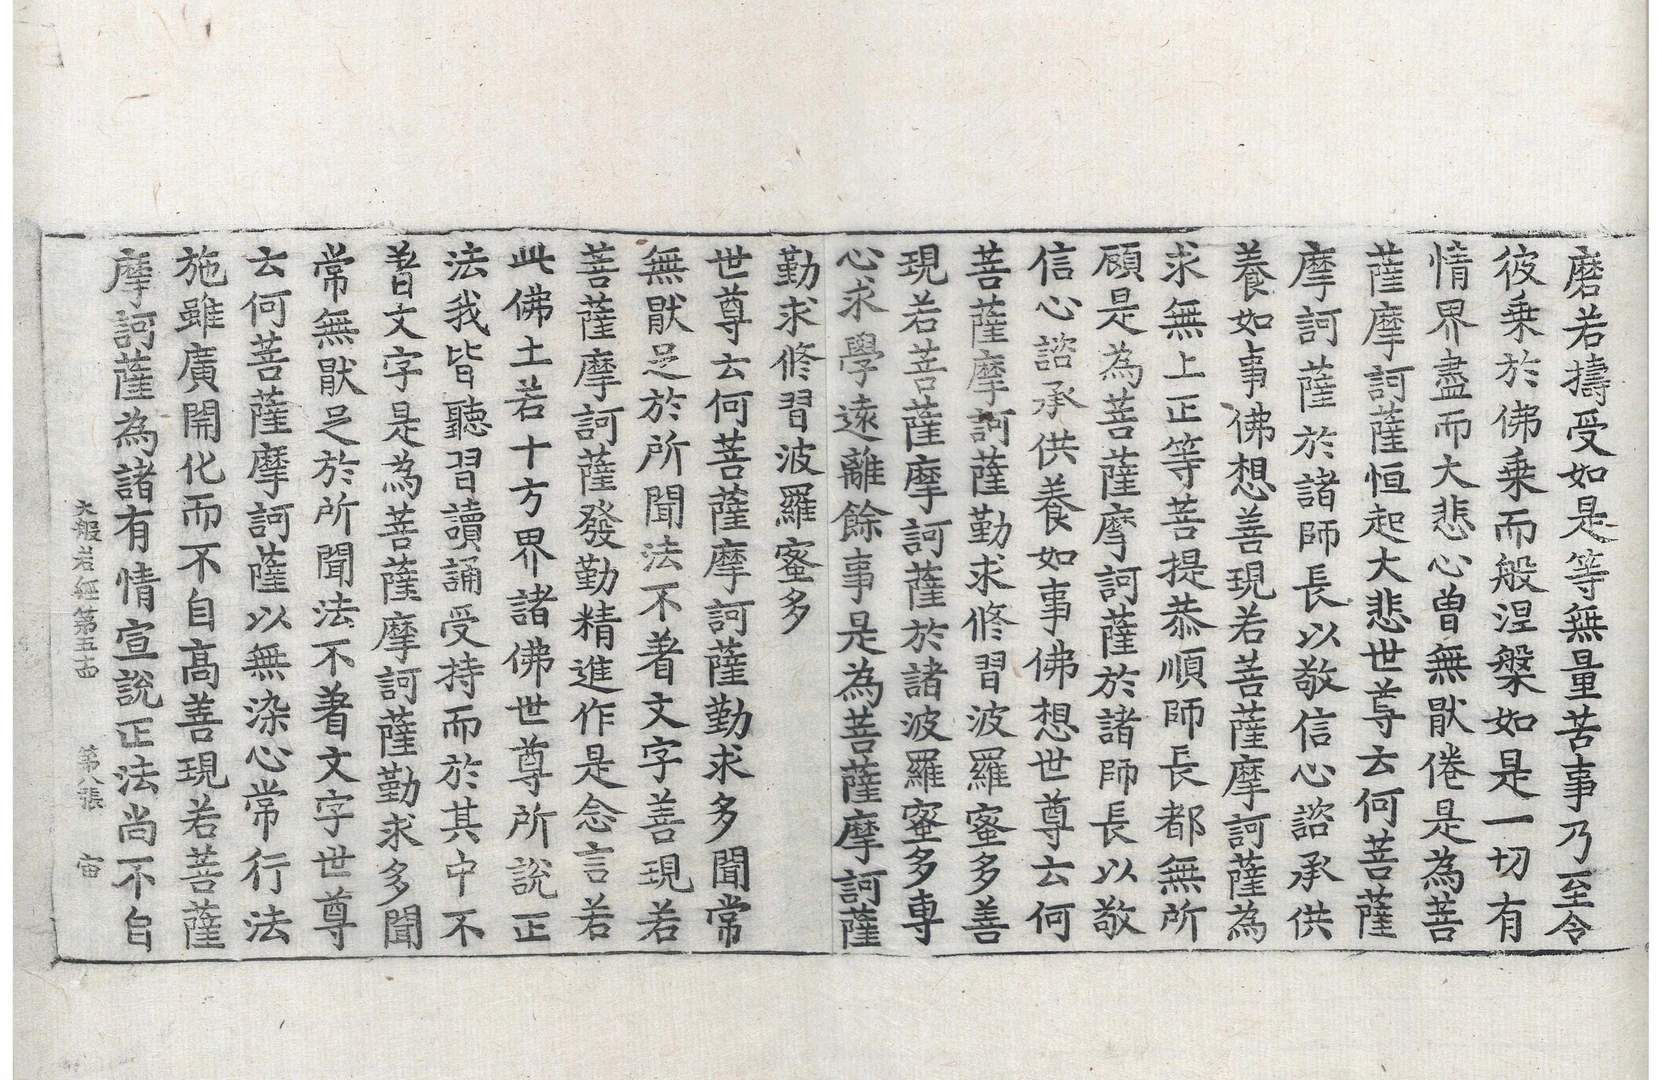 磨若擣受如是等無量苦事乃至令
彼乗於佛乗而般涅槃如是一切有
情界盡而大悲心曽無猒倦是為菩
薩摩訶薩恒起大悲世尊云何菩薩
摩訶薩於諸師長以敬信心諮承供
養如事佛想善現若菩薩摩訶薩為
求無上正等菩提恭順師長都無所
顧是為菩薩摩訶薩於諸師長以敬
信心諮承供養如事佛想世尊云何
菩薩摩訶薩勤求修習波羅蜜多善
現若菩薩摩訶薩於諸波羅蜜多専
心求學遠離餘事是為菩薩摩訶薩
勤求修習波羅蜜多
世尊云何菩薩摩訶薩勤求多聞常
無猒足於所聞法不著文字善現若
菩薩摩訶薩發勤精進作是念言若
此佛土若十方界諸佛世尊所說正
法我皆聽習讀誦受持而於其中不
著文字是為菩薩摩訶薩勤求多聞
常無猒足於所聞法不著文字世尊
云何菩薩摩訶薩以無染心常行法
施雖廣開化而不自高善現若菩薩
摩訶薩為諸有情宣說正法尚不自
大般若經第五十四 第八張 宙